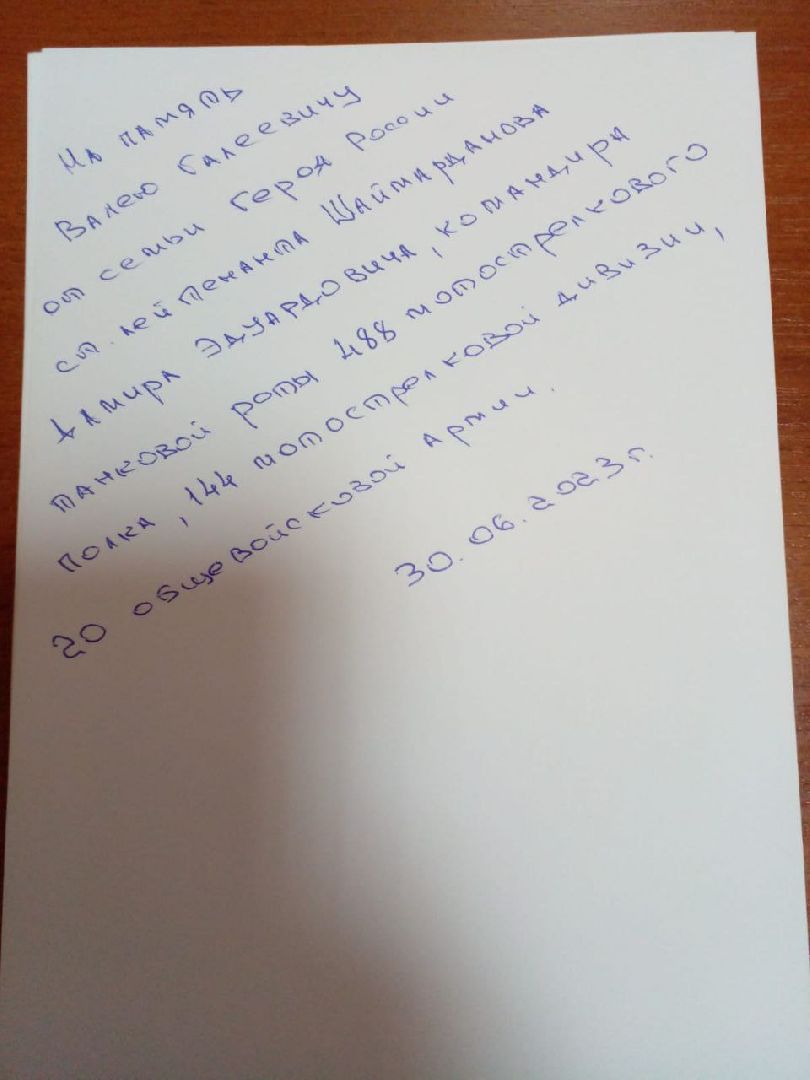 На память
Валею Галеевичу
от семьи Героя России
ст. лейтенанта Шаймарданова
Дамира Эдуардовича, командира
танковой роты 488 мотострелкового
полка, 144 мотострелковой дивизии,
20 общевойсковой армии.
30.06.2023г.